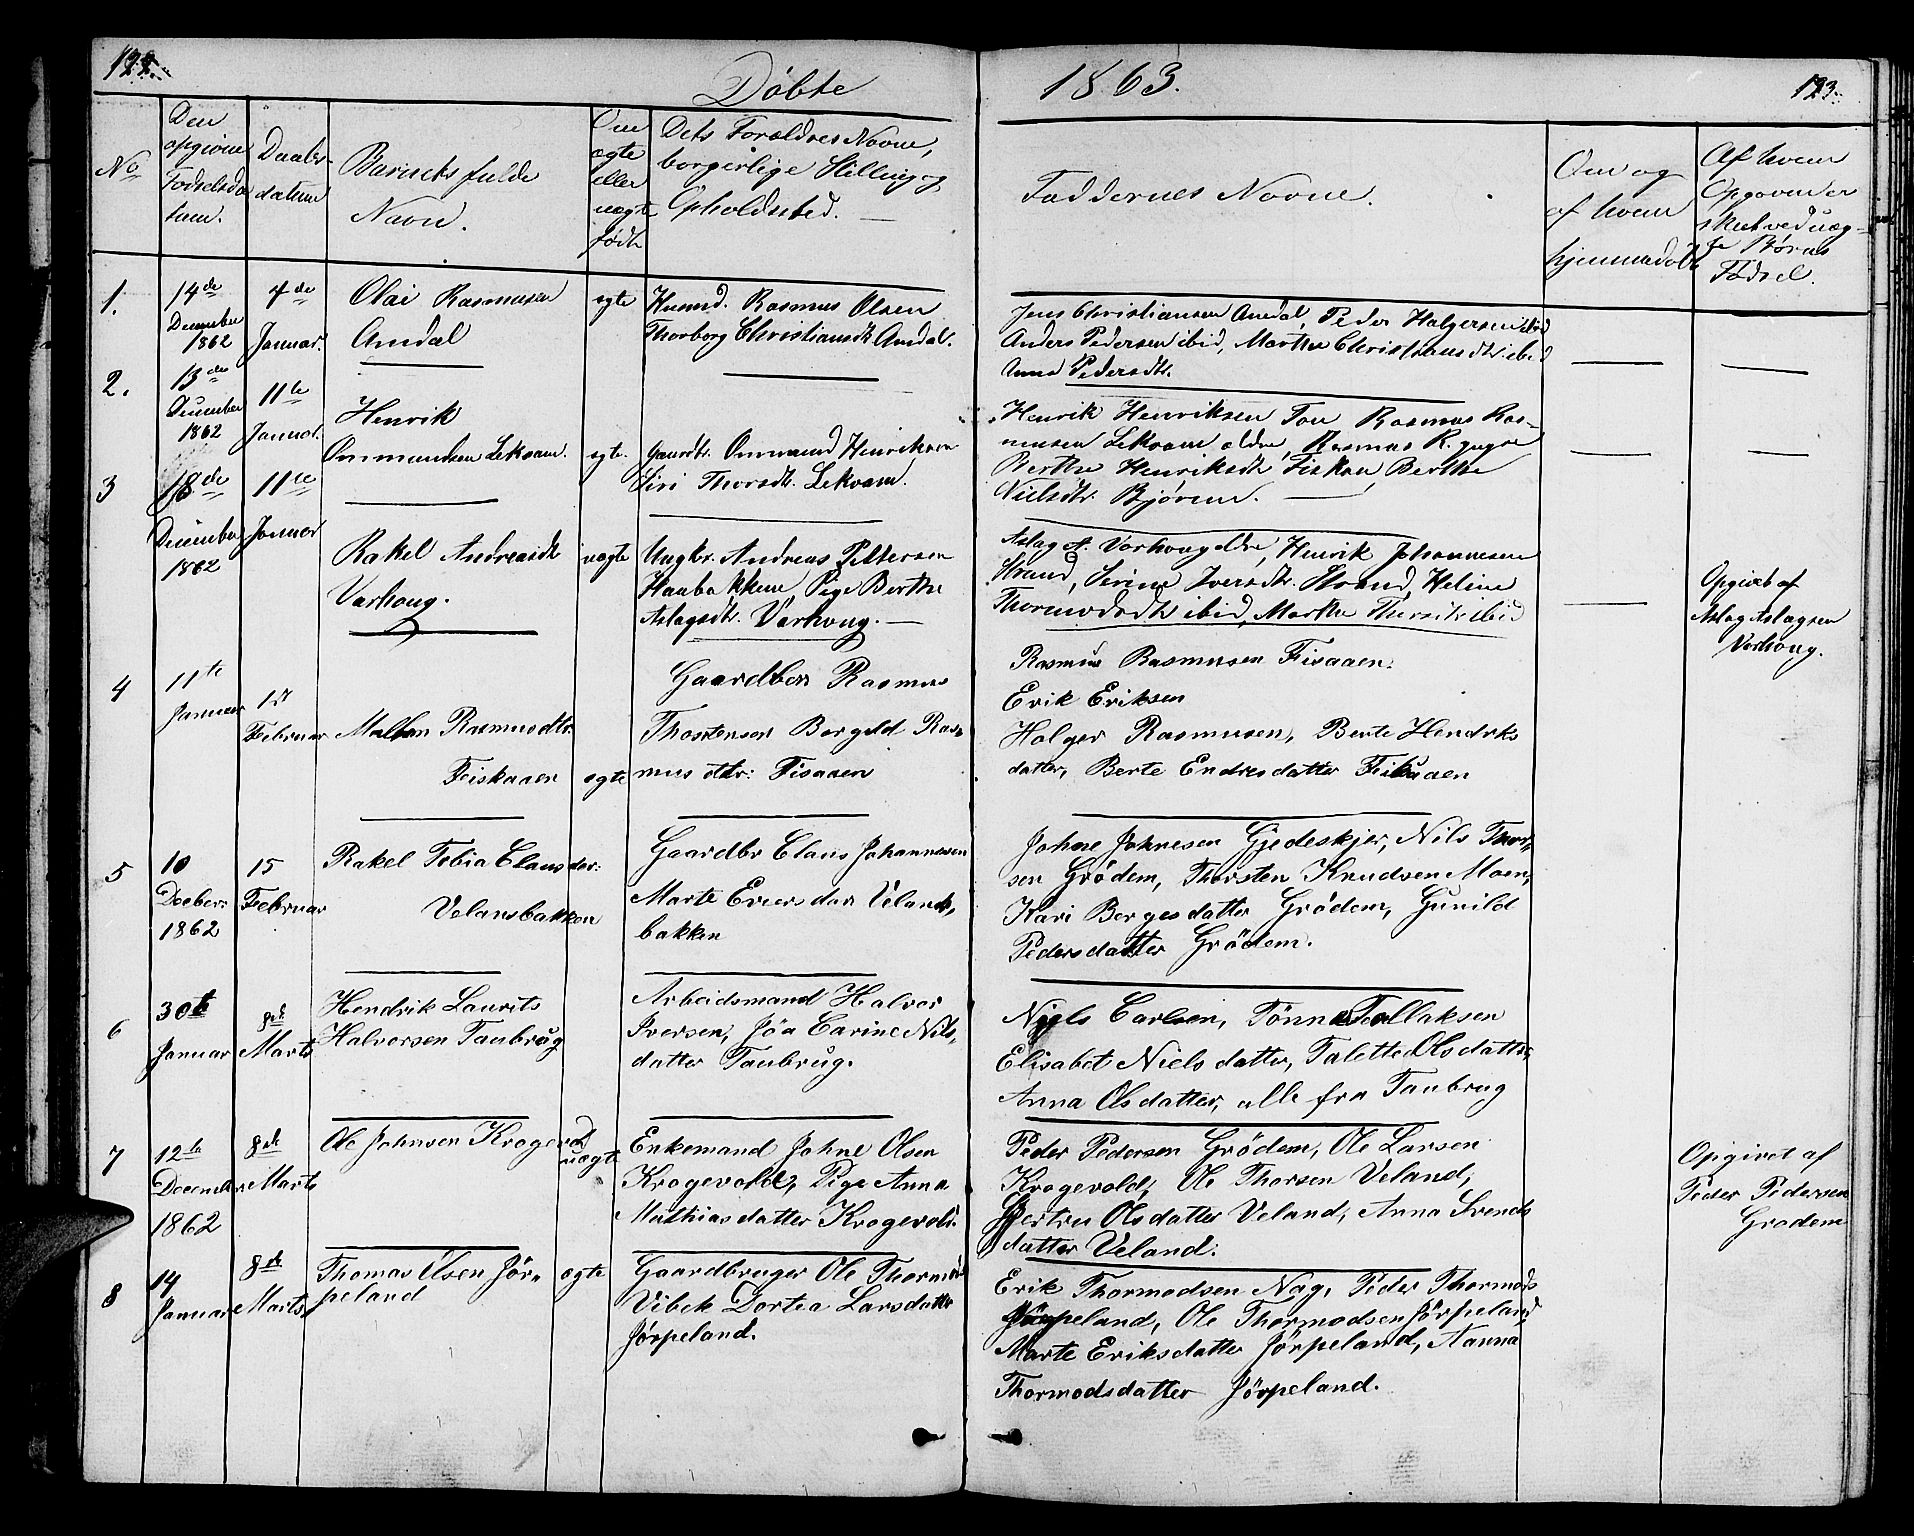 122.
Döbte
1863.
123.
No
Den
opgivne
Födselsda
tum.
Daabs-
datum
Barnets fulde
Navn.
Om
ægte
eller
uægte
födt
Dets Foreldres Navne,
borgerlige Stilling og
Opholdssted. —
Faddernes Navne.
Om og
af hvem
hjemmedöbt
Af hvem
Opgaven er
skeet ved uæg-
te Börns
Födsel.
1.
14de
December
1862
4de
Januar.
Olai Rasmusen
Amdal
egte
Huusmd. Rasmus Olsen
Thorborg Christiansdt. Amdal.
Jens Christiansen Amdal, Peder Halgersen ibid
Anders Pedersen ibid, Marthe Christiansdt. ibid
Anna Pedersdt.
2.
13de
December
1862
11te
Januar.
Henrik
Ommundsen Lekvam.
egte.
Gaardbr. Ommund Henriksen
Siri Thorsdt. Lekvam.
Henrik Henriksen, Tou Rasmus Ras-
musen Lekvam eldre, Rasmus R. yngre
Berthe Henriksdt. Fiskaa, Berthe
Nielsdt. Bjøreim. —
3
18de
December
1862
11te
Januar
Rakel Andreasdt
Varhoug.
uægte
Ungkr. Andreas Pettersen
Haubakken, Pige Berthe
Aslagsdtr. Varhoug. —
Aslag A. Varhoug eldre, Henrik Johannesen
Strand, Serine Iversdtr. Strand, Heline
Thormodsdt ibid, Marthe Thorsdtr ibid
Opgivet af
Aslag Aslagsen
Varhoug.
4
11te
Januar
1st
Februar
Malen Rasmusdtr.
Feiskaaen
egte
Gaardber Rasmus
Thorstenson Bergild Ras-
mus dttr: Fisaaen
Rasmus Rasmusen Fisaaen.
Erik Eriksen
Halger Rasmusen, Berte Hendriks
datter, Berte Endresdatter Fiskaaen
5
10
Deeber
1862
15
Februar
Rakel Tobia Clausdor:
Velansbakken
Gaardbr Claus Johannesen
Marte Eversdar Veland,
bakken
Johne Johnesen Gjedeskjer, Nils Thor-
sen Grödem, Thorsten Knudsen Moen,
Kari Bergesdatter Grödem, Gunild
Pedersdatter Grödem.
6
30te
Januar
8de
Marts
Hendrik Laurits
Halvorsen Taubrug
Arbeidsmand Halvor
Iversen, Jöa Carine Nils,
datter Taubrug.
Niels Carlsen, Tönnes Tollaksen
Elisabet Nielsdatter, Talette Olsdatter,
Anna Olsdatter, alle fra Taubrug
7
12te
December
1862
8de
Marts
Ole Johnsen Krogevold
uægte
Enkemand Johne Olsen
Krogevold, Pige Anna
Mathiasdatter Krogevold.
Peder Pedersen Grödem, Ole Larsen
Krogevold, Ole Thorsen Veland,
Bertru Olsdatter Veland, Anna Svends
datter Veland.
Opgivet af
Peder Pedersen
Grodem
8
14
Januar
8de
Marts
Thomas Olsen Jör-
peland
egte
Gaardbruger Ole Thormods
Vibek Dortea Larsdatter
Jörpeland.
Erik Thormodsen Nag, Peder Thormods
Jörpeland, Ole Thormodsen Jörpeland,
Marte Eriksdatter Jörpeland, Aanna
Thormodsdatter Jörpeland.